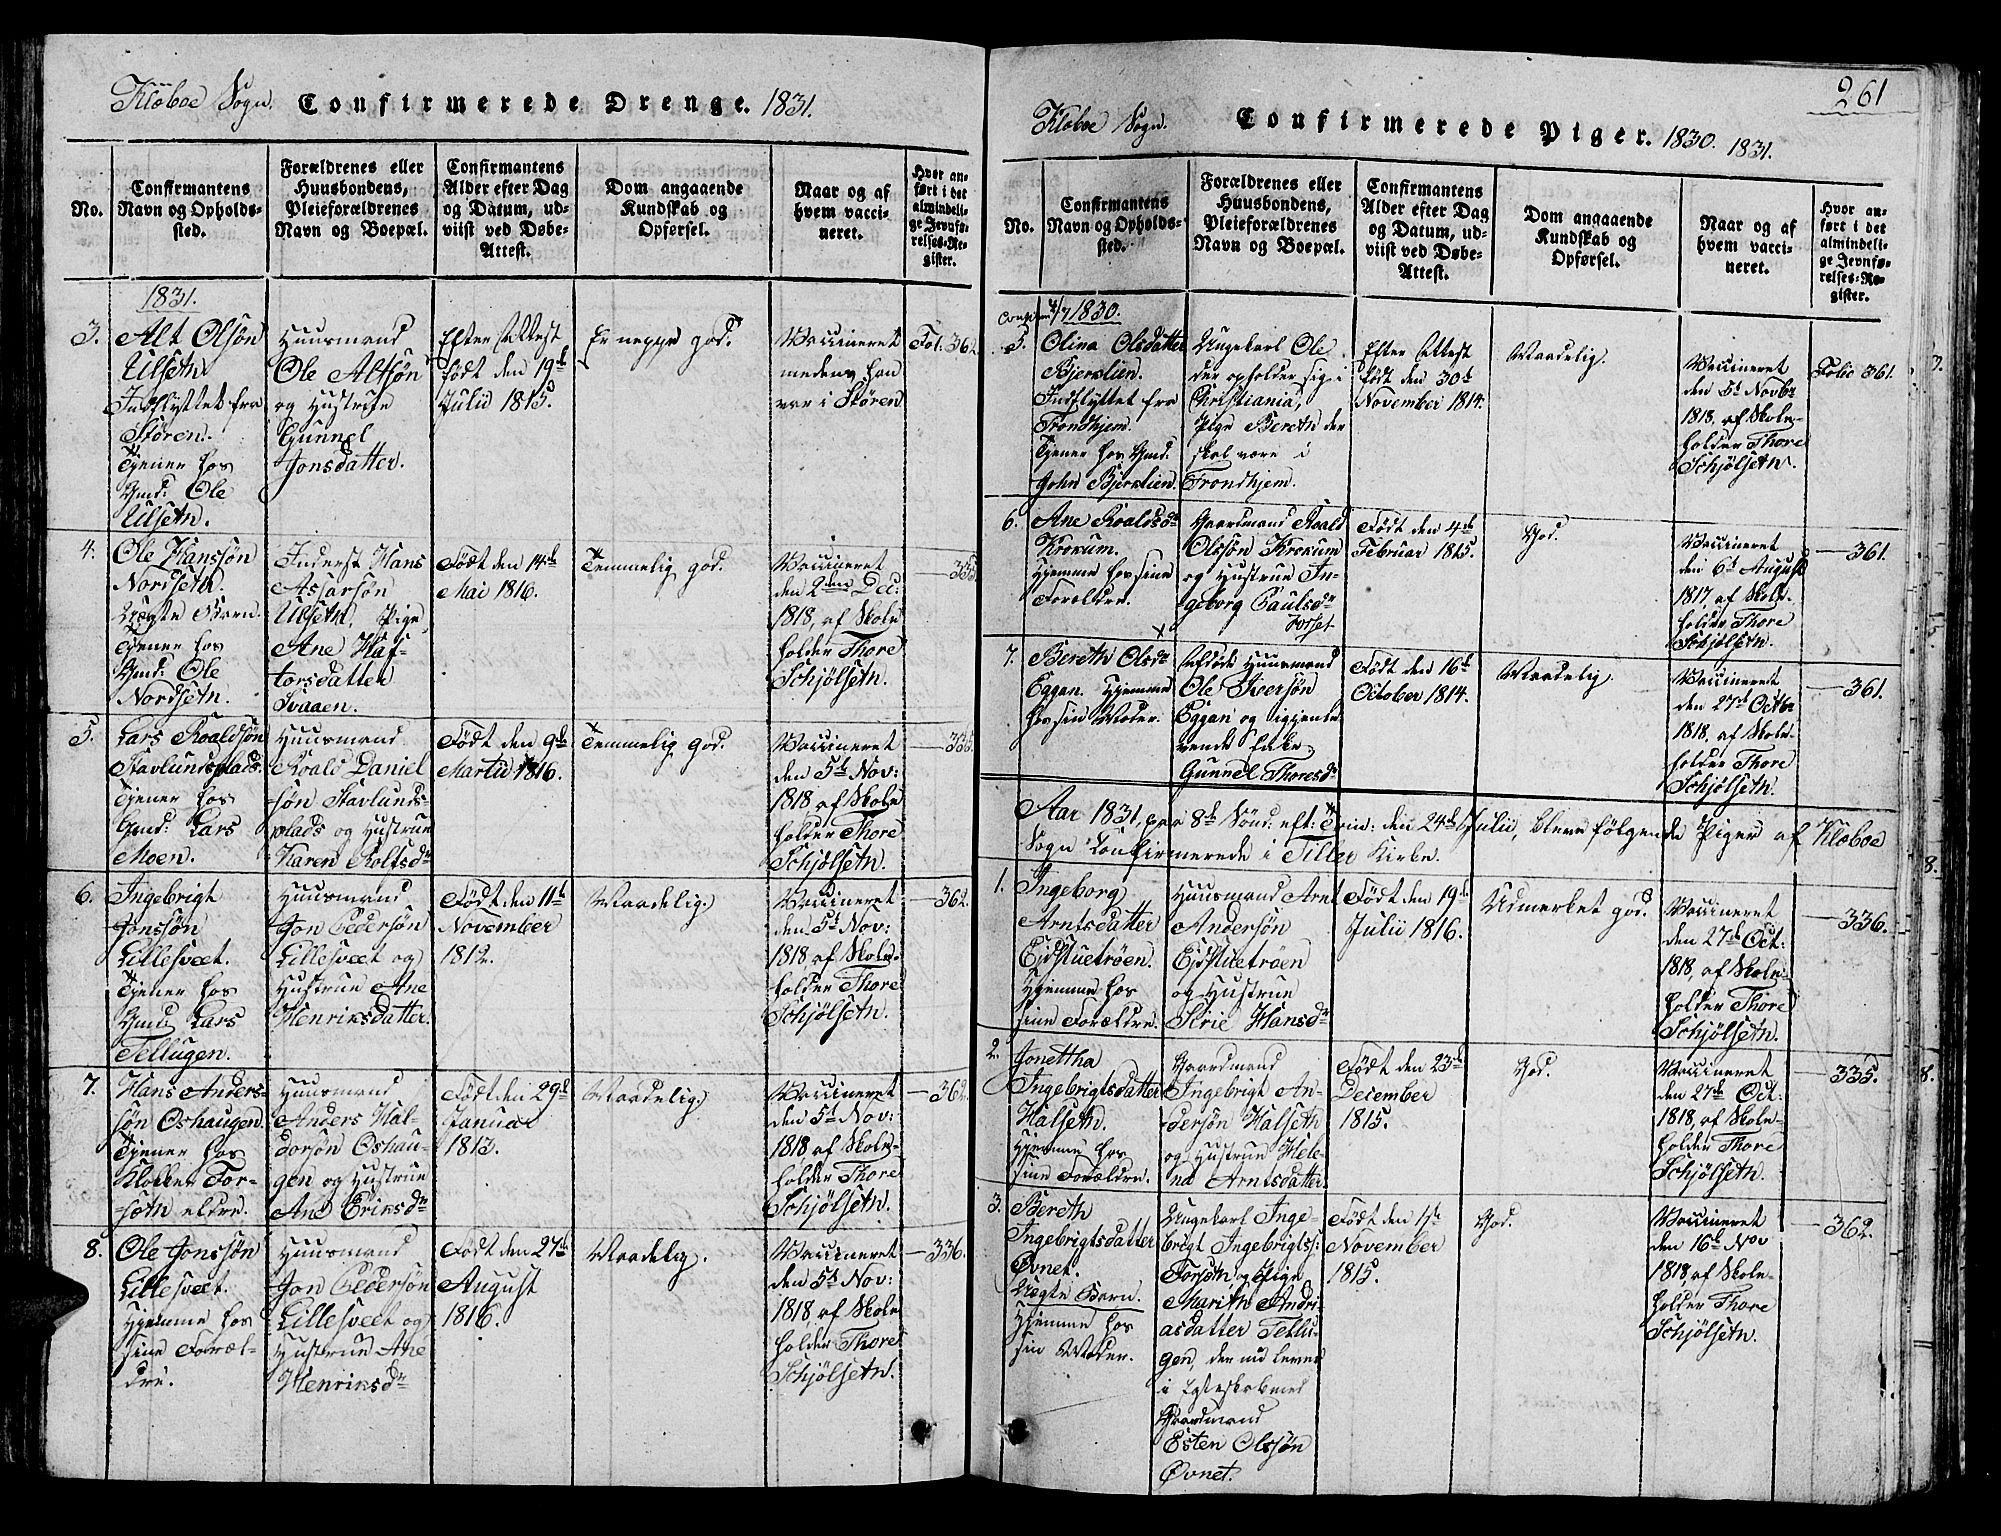 Klæboe Sogn. Confirmerede Drenge. 1831.
No.
Confirmantens
Navn og Opholds-
sted.
Forældrenes eller
Huusbondens,
Pleieforældrenes
Navn og Boepæl.
Confirmantens
Alder efter Dag
og Datum, ud-
viist ved Døbe-
Attest.
Dom angaaende
Kundskab og
Opførsel.
Naar og af
hvem vacci-
neret.
Hvor an-
ført i det
almindeli-
ge Jevnfø-
relses-Re-
gister.
1831.
3.
Alt Olsøn
Ulsetn.
Indflyttet fra
Støren.
Tjener hos
Gmd: Ole
Ulsetn.
Huusmand
Ole Altsøn
og Hustrue
Gunnel
Jonsdatter.
Efter Attest
født den 19de
Julii 1815.
Er neppe god.
Vaccineret
medens han
var i Støren
Fol. 362
4.
Ole Hanssøn
Nordsetn.
Uægte Barn.
Tjener hos
Gmd: Ole
Nordsetn.
Inderst Hans
Assarsøn
Ulsetn, Pige
Ane Haf-
torsdatter
Svaaen.
Født den 14de
Mai 1816.
Temmelig god.
Vaccineret
den 2den Dec:
1818, af Skole
holder Thore
Schjølsetn.
— 335
5.
Lars Roaldsøn
Stavlundsplads.
Tjener hos
Gmd: Lars
Moen.
Huusmand
Roald Daniel
søn Stavlunds-
plads og Hustrue
Karen Rolfsdr
Født den 9de
Martii 1816.
Temmelig god.
Vaccineret
den 5t Nov:
1818 af Skole
holder Thore
Schjølsetn.
— 335
6.
Ingebrigt
Jonssøn
Lillesveet.
Tjener hos
Gmd Lars
Tellugen.
Huusmand
Jon Pedersøn
Lillesveet og
Hustrue Ane
Henriksdatter.
Født den 11te
November
1812.
Maadelig.
Vaccineret
den 5t Nov:
1818 af Skole-
holder Thore
Schjølsetn.
— 362.
7.
Hans Anders-
søn Oshaugen.
Tjener hos
Klokker For-
setn eldre.
Huusmand
Anders Hal-
dorsøn Oshau-
gen og Hustrue
Ane Eriksdr
Født den 29de
Januar
1813.
Maadelig.
Vaccineret
den 5t Nov:
1818 af Skole-
holder Thore
Schjølsetn.
— 362
8.
Ole Jonssøn
Lillesveet.
Hjemme hos
sine Foræl-
dre.
Huusmand
Jon Pedersøn
Lillesveet og
Hustrue Ane
Henriksdr
Født den 27de
August
1816.
Maadelig.
Vaccineret
den 5t Nov:
1818, af Skole
holder Thore
Schjølsetn.
— 336.
261
Klæboe Sogn. Confirmerede Piger. 1830. 1831.
No.
Confirmantens
Navn og Opholds-
sted.
Forældrenes eller
Huusbondens,
Pleieforældrenes
Navn og Boepæl.
Confirmantens
Alder efter Dag
og Datum, ud-
viist ved Døbe-
Attest.
Dom angaaende
Kundskab og
Opførsel.
Naar og af
hvem vacci-
neret.
Hvor an-
ført i det
almindeli-
ge Jevnfø-
relses-Re-
gister.
4/7 1830.
5.
Olina Olsdatter
Bjerklien.
Indflyttet fra
Trondhjem.
Tjener hos Gmd.
John Bjerklien.
Ungekarl Ole
der opholder sig i
Christiania,
Pige Bereth der
skal være i
Trondhjem.
Efter Attest
født den 30te
November 1814.
Maadelig.
Vaccineret
den 5t Novbr
1818, af Skole-
holder Thore
Schjølsetn.
Folio 361.
6.
Ane Roaldsdr
Krokum.
Hjemme hos sine
Forældre.
Gaardmand Roald
Olssøn Krokum
og Hustrue In-
geborg Paulsdr
Forset
Født den 4de
Februar 1815.
God.
Vaccineret
den 6t August
1817, af Skole-
holder Thore
Schjølsetn.
— 361.
7.
Bereth Olsdr
Eggan. Hjemme
hos sin Moder.
Afdøde Huusmand
Ole Iversøn
Eggan og igjenle-
vende Enke
Gunnel Thoresdr
Født den 16de
October 1814.
Maadelig.
Vaccineret
den 27de Octbr
1818, af Skole-
holder Thore
Schjølsetn.
— 361.
Aar 1831, paa 8de Sønd: eft: Trin: den 24de Julii, bleve følgende Piger af Klæboe
Sogn Confirmerede i Tiller Kirke.
1.
Ingeborg
Arntsdatter
Ejdstuetrøen.
Hjemme hos
sine Forældre.
Huusmand Arnt
Andersøn
Ejdstuetrøen
og Hustrue
Sirie Hansdr
Født den 19de
Julii 1816.
Udmerket god.
Vaccineret
den 27de Oct:
1818, af Skole-
holder Thore
Schjølsetn.
— 336.
2.
Jonettha
Ingebrigtsdatter
Halsetn.
Hjemme hos
sine Forældre.
Gaardmand
Ingebrigt An-
dersøn Halseth
og Hustrue Hele-
na Arntsdatter.
Født den 23de
December
1815.
God.
Vaccineret
den 27de Oct:
1818, af Skole-
holder Thore
Schjølsetn.
— 335.
3.
Bereth
Ingebrigtsdatter
Øvnet.
Uægte Barn.
Hjemme hos
sin Moder.
Ungekarl Inge-
brigt Ingebrigtss:
Forsetn, og Pige
Marith Andri-
asdatter Tellu-
gen, der nu lever
i Egteskab med
Gaardmand
Esten Olssøn
Øvnet.
Født den 1ste
November
1815.
God.
Vaccineret
den 16de Nov
1818, af Skole-
holder Thore
Schjølsetn.
— 362.